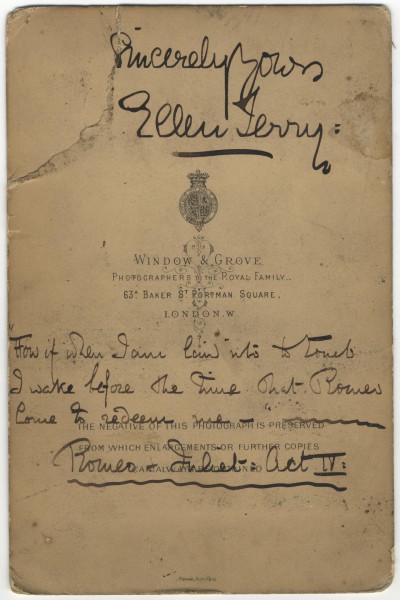 Sincerely Yours
Ellen Terry:
WINDOW & GROVE.
PHOTOGRAPHERS TO THE ROYAL FAMILY.
63A BAKER ST PORTMAN SQUARE.
LONDON. W.
"How if when I am laid into the tomb
I wake before the time that Romeo
Come to redeem me—"
THE NEGATIVE OF THIS PHOTOGRAPH IS PRESERVED
FROM WHICH ENLARGEMENTS OR FURTHER COPIES
Romeo & Juliet: Act IV: